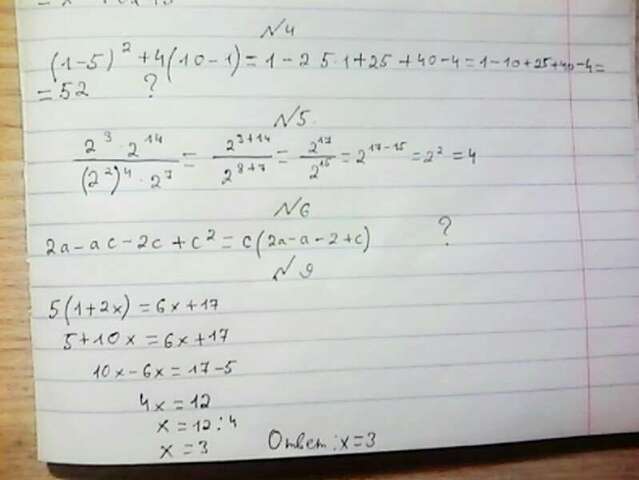 N4
(1-5)² + 4(10-1) = 1 - 2 5·1 + 25 + 40 - 4 = 1 - 10 + 25 + 40 - 4 =
= 52 ?
N5.
2³ · 2¹⁴ / (2²)⁴ · 2⁷ = 2³⁺¹⁴ / 2⁸⁺⁷ = 2¹⁷ / 2¹⁵ = 2¹⁷⁻¹⁵ = 2² = 4
N6
2a - ac - 2c + c² = c(2a - a - 2 + c) ?
N9
5(1+2x) = 6x + 17
5 + 10x = 6x + 17
10x - 6x = 17 - 5
4x = 12
x = 12 : 4
x = 3 Ответ: x = 3